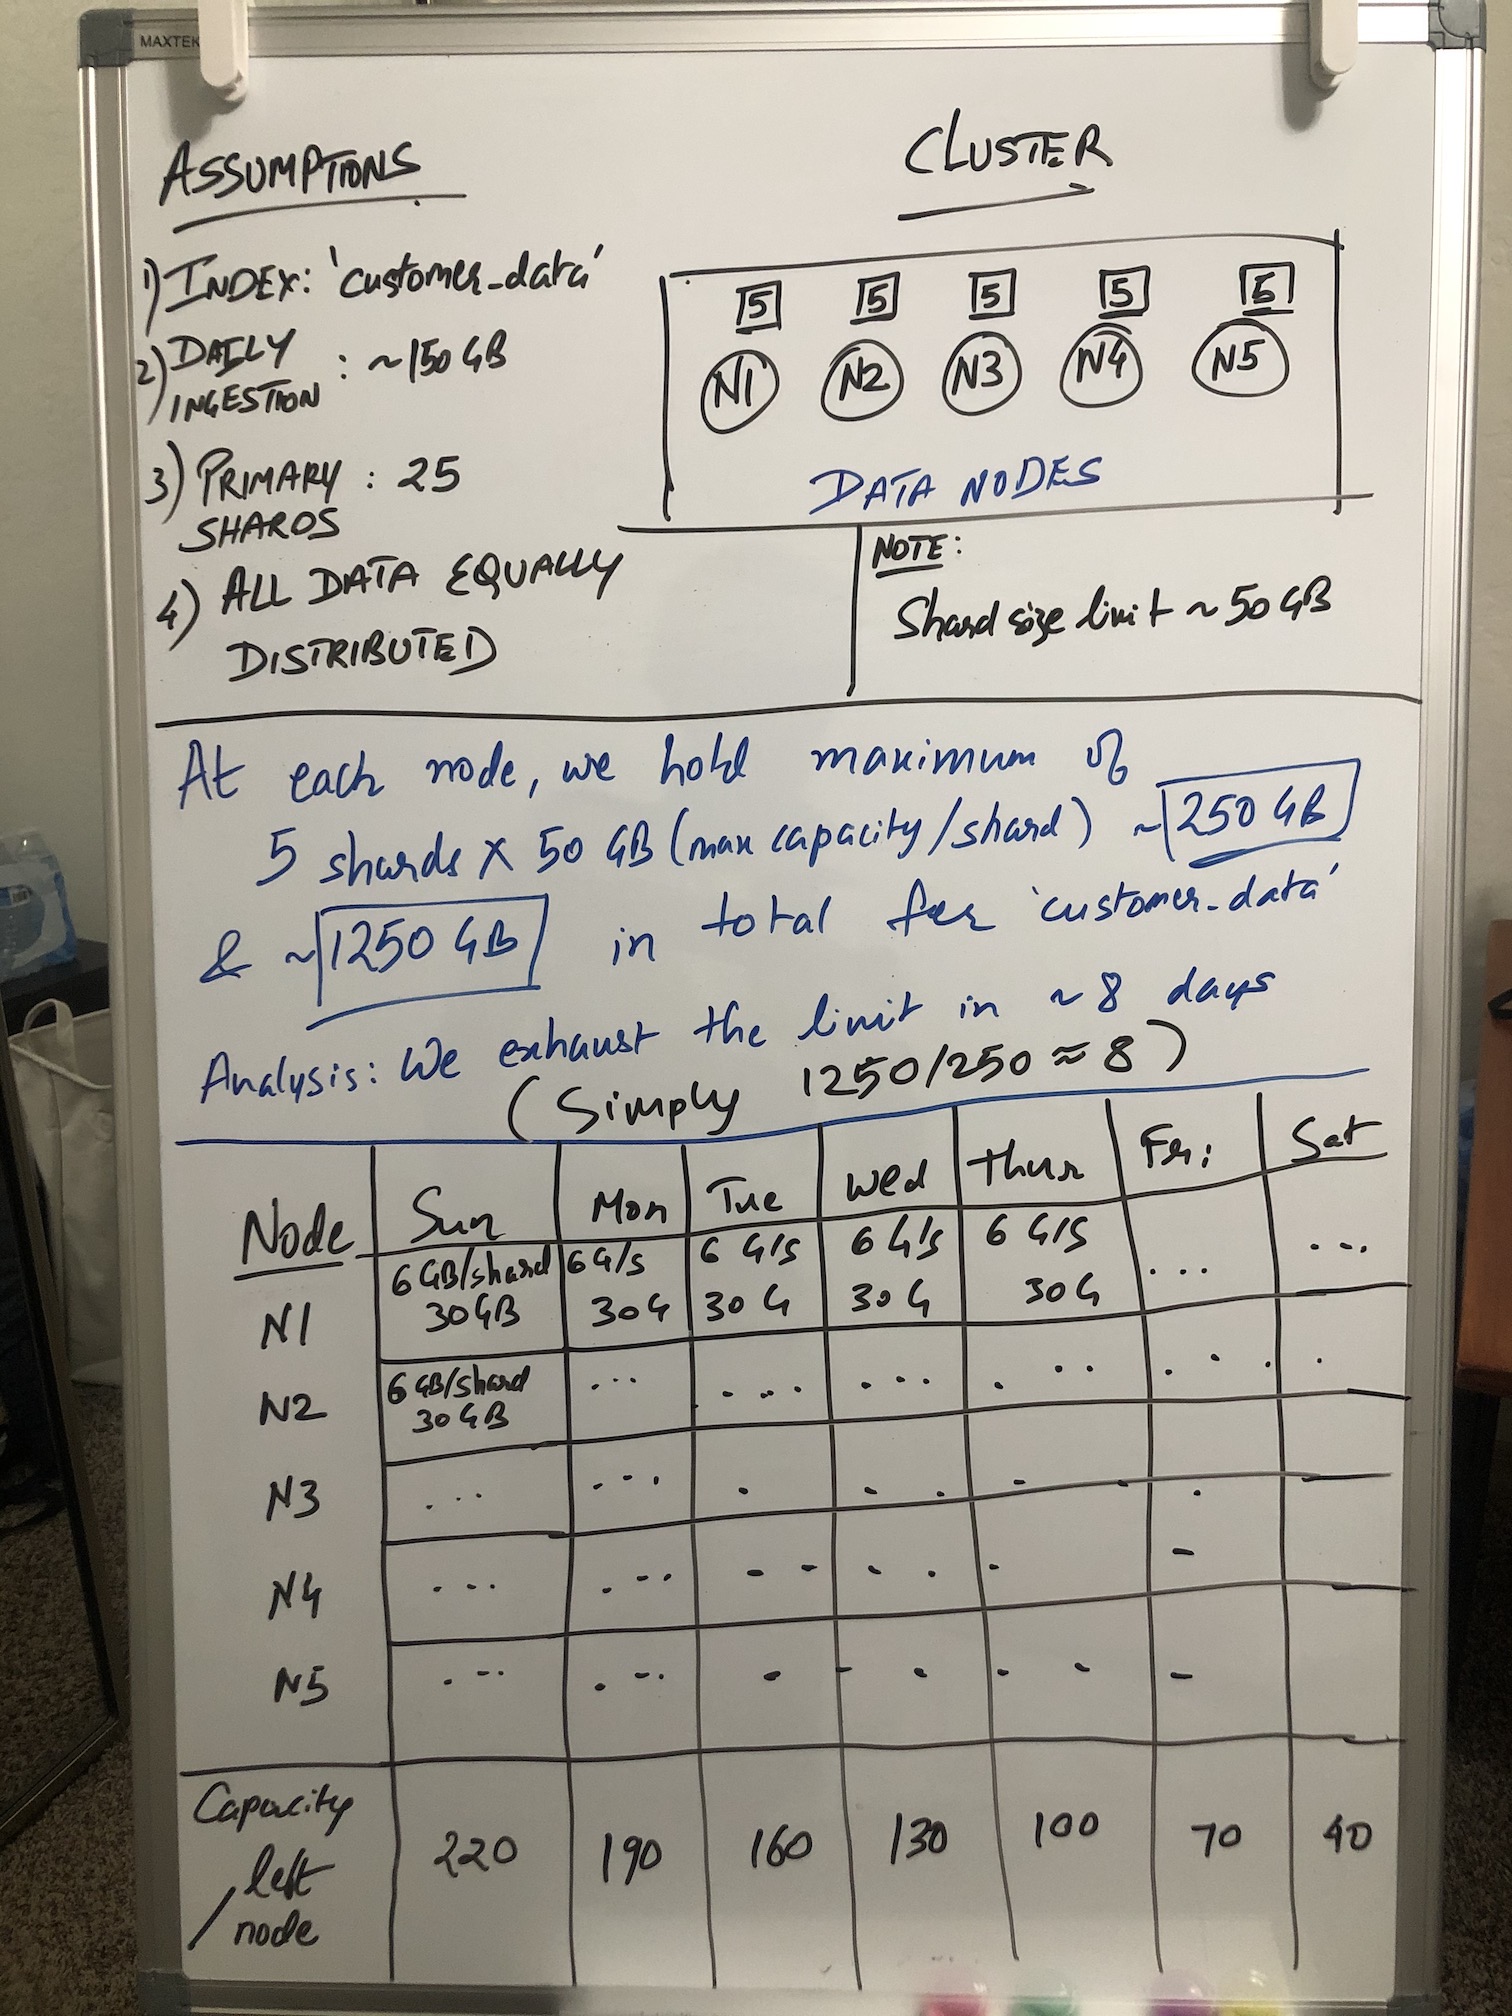 MAXTEK
ASSUMPTIONS
1) INDEX: 'customer_data'
2) DAILY
INGESTION : ~150 GB
3) PRIMARY : 25
SHARDS
4) ALL DATA EQUALLY
DISTRIBUTED
CLUSTER
5 5 5 5 5
N1 N2 N3 N4 N5
DATA NODES
NOTE:
Shard size limit ~ 50 GB
At each node, we hold maximum of
5 shards x 50 GB (max capacity/shard) ~ 250 GB
& ~ 1250 GB in total for 'customer_data'
Analysis: We exhaust the limit in ~ 8 days
(Simply 1250/250 ≈ 8)
Node Sun Mon Tue Wed Thur Fri Sat
6 GB/shard 6 G/s 6 G/s 6 G/s 6 G/s ... ...
N1 30 GB 30 G 30 G 30 G 30 G
6 GB/shard ... ... ... ... ...
N2 30 GB
N3 ... ... . . . - .
N4 ... ... - - . . . -
N5 ... ... - - . . . -
Capacity
left
/ node 220 190 160 130 100 70 40